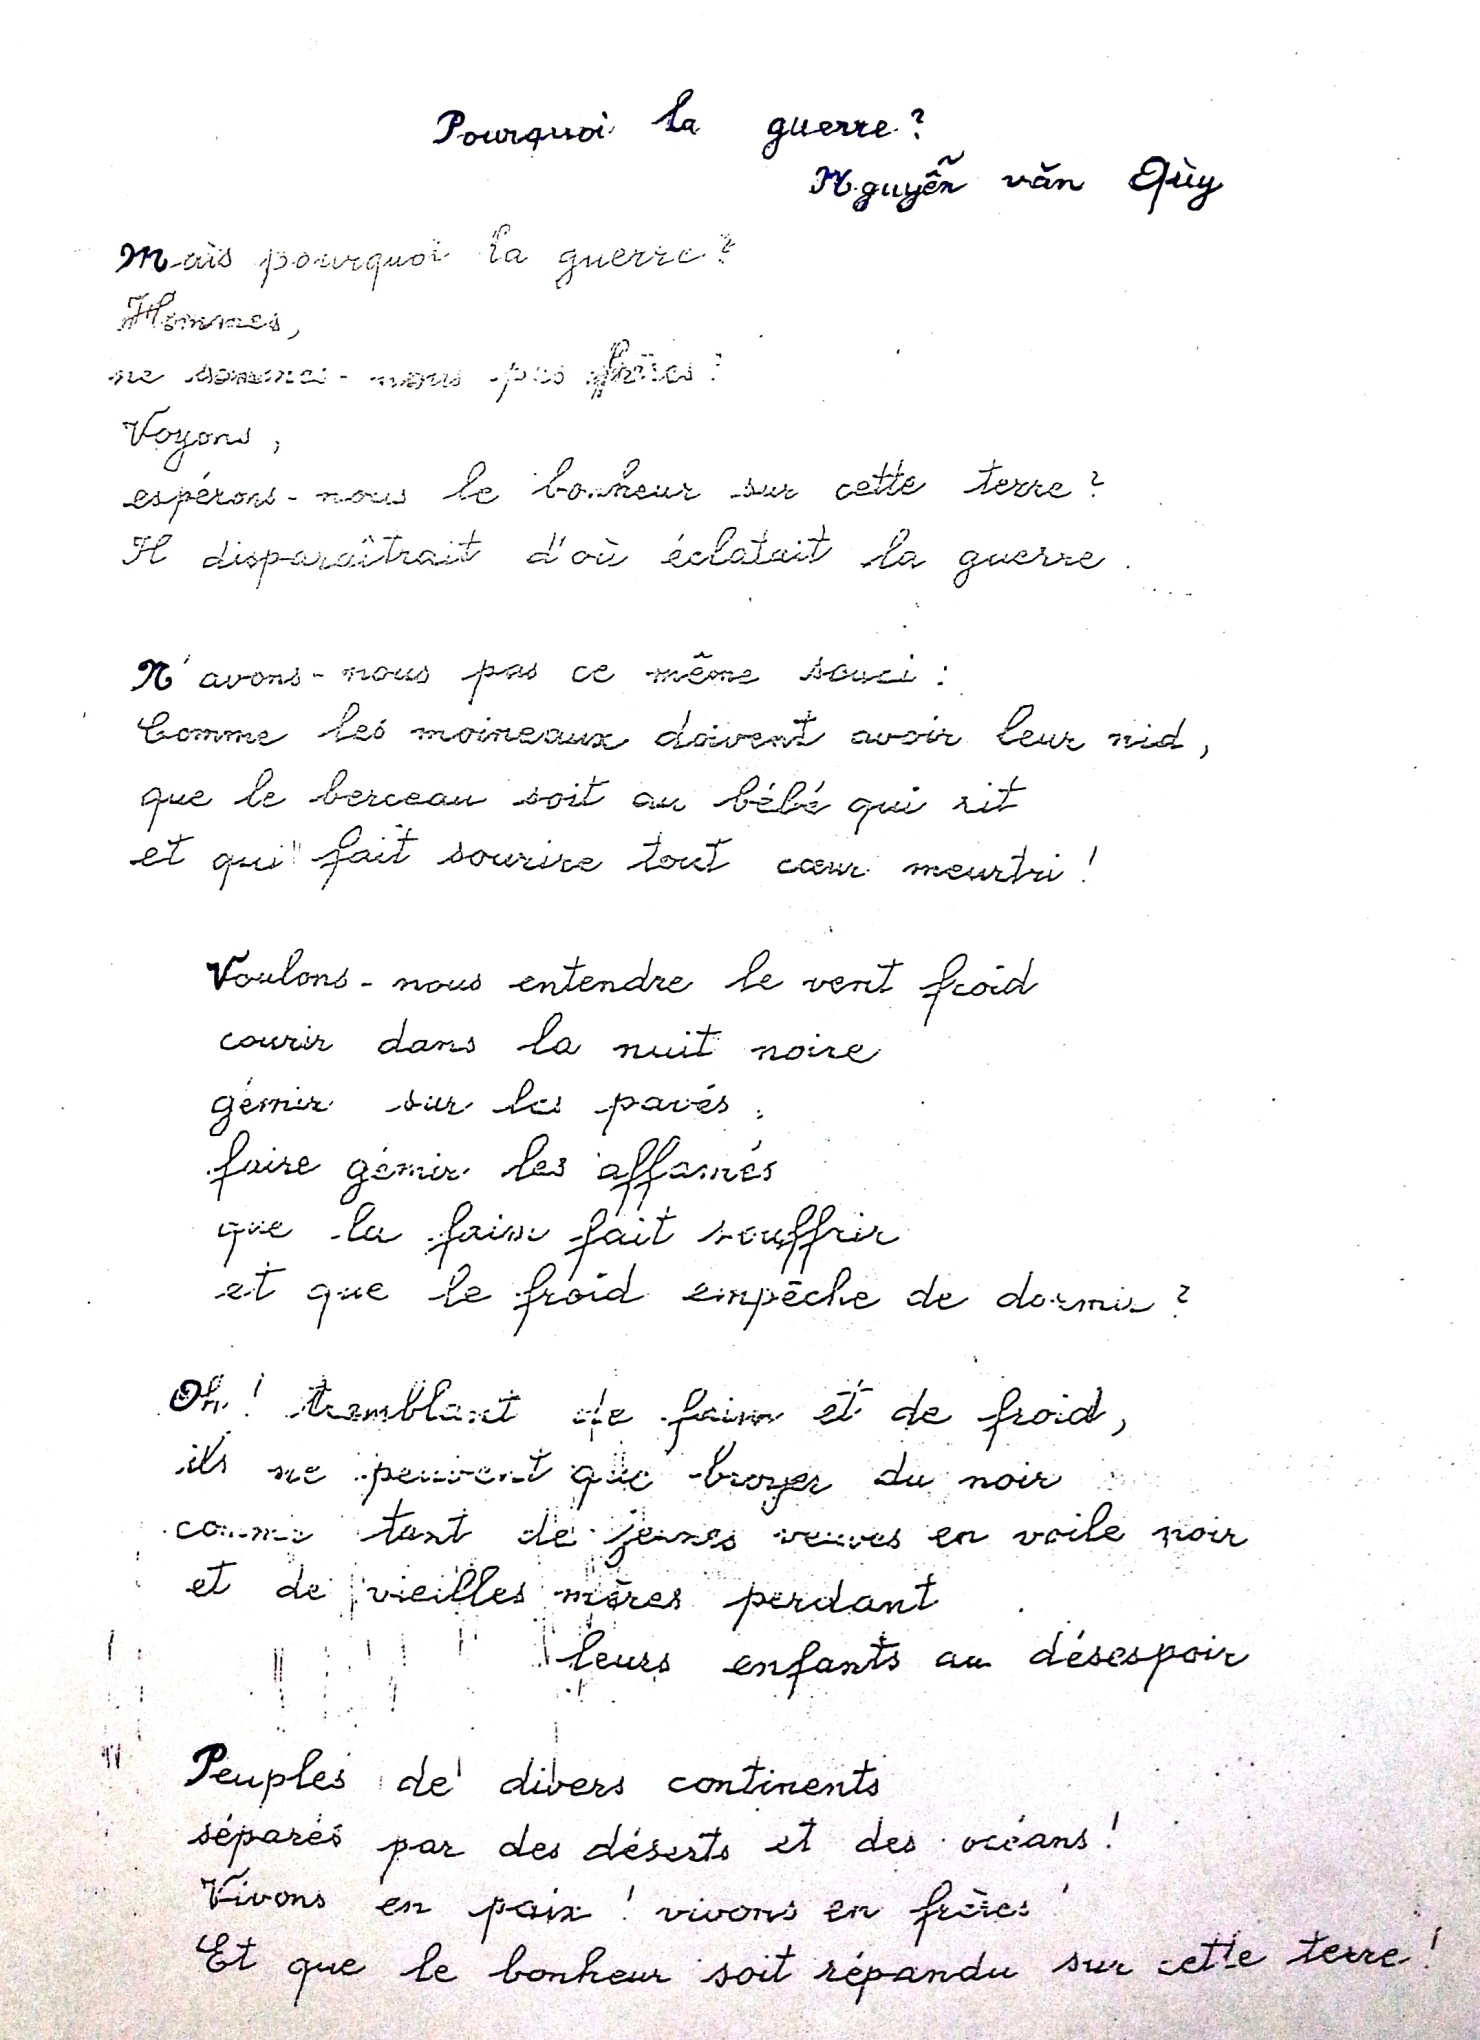 Pourquoi la guerre ?
Nguyễn văn Qùy
Mais pourquoi la guerre ?
Hommes,
ne sommes-nous pas frères ?
Voyons,
espérons-nous le bonheur sur cette terre ?
Il disparaîtrait d'où éclatait la guerre.
N'avons-nous pas ce même souci :
Comme les moineaux doivent avoir leur nid,
que le berceau soit au bébé qui rit
et qui fait sourire tout cœur meurtri !
Voulons-nous entendre le vent froid
courir dans la nuit noire
gémir sur les pavés,
faire gémir les affamés
que la faim fait souffrir
et que le froid empêche de dormir ?
Oh ! tremblant de faim et de froid,
ils ne peuvent que broyer du noir
comme tant de jeunes veuves en voile noir
et de vieilles mères perdant
leurs enfants au désespoir
Peuples de divers continents
séparés par des déserts et des océans !
Vivons en paix ! vivons en frères !
Et que le bonheur soit répandu sur cette terre !